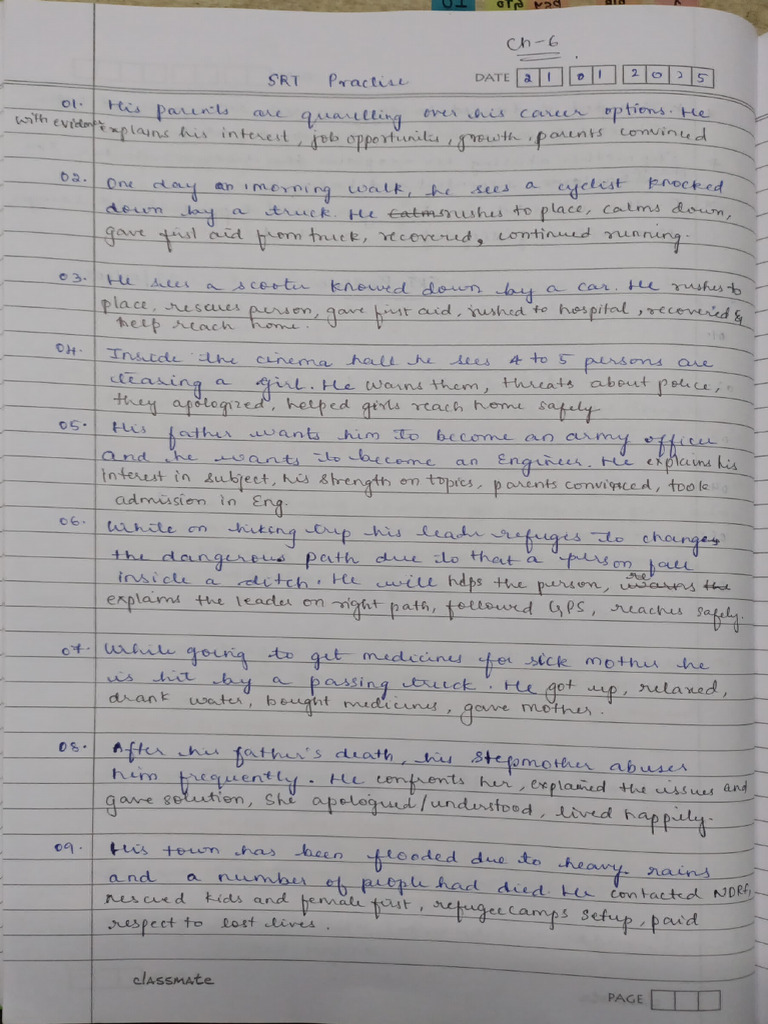 Ch-6
SRT Practise DATE 21 01 2025
01. His parents are quarelling over his career options. He
with evidence explains his interest, job opportunities, growth, parents convinced
02. One day on morning walk, he sees a cyclist knocked
down by a truck. He rushes to place, calms down,
gave first aid from truck, recovered, continued running.
03. He sees a scooter knowed down by a car. He rushes to
place, rescues person, gave first aid, rushed to hospital, recovered &
help reach home.
04. Inside the cinema hall he sees 4 to 5 persons are
teasing a girl. He warns them, threats about police,
they apologized, helped girls reach home safely
05. His father wants him to become an army officer
and he wants to become an Engineer. He explains his
interest in subject, his strength on topics, parents convinced, took
admission in Eng.
06. While on hiking trip his leader refuges to change
the dangerous path due to that a person fall
inside a ditch. He will helps the person,
explains the leader on right path, followed GPS, reaches safely.
07. While going to get medicines for sick mother he
is hit by a passing truck. He got up, relaxed,
drank water, bought medicines, gave mother.
08. After his father's death, his stepmother abuses
him frequently. He confronts her, explained the issues and
gave solution, She apologised/understood, lived happily.
09. His town has been flooded due to heavy rains
and a number of people had died. He contacted NDRF,
rescued kids and female first, refugee camps setup, paid
respect to lost lives.
classmate
PAGE